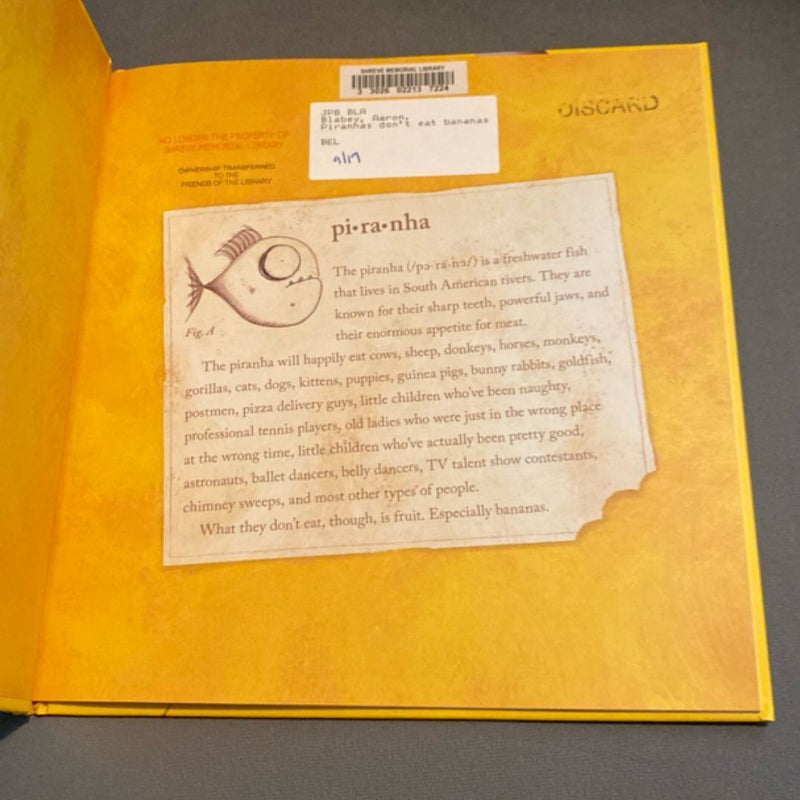 SHREVE MEMORIAL LIBRARY
3 3026 02213 7224
DISCARD
JPB BLA
Blabey, Aaron.
Piranhas don't eat bananas
BEL
9/17
NO LONGER THE PROPERTY OF
SHREVE MEMORIAL LIBRARY
OWNERSHIP TRANSFERRED
TO THE
FRIENDS OF THE LIBRARY
pi•ra•nha
The piranha (/pə-ˈrä-nə/) is a freshwater fish
that lives in South American rivers. They are
known for their sharp teeth, powerful jaws, and
their enormous appetite for meat.
Fig. A
The piranha will happily eat cows, sheep, donkeys, horses, monkeys,
gorillas, cats, dogs, kittens, puppies, guinea pigs, bunny rabbits, goldfish,
postmen, pizza delivery guys, little children who've been naughty,
professional tennis players, old ladies who were just in the wrong place
at the wrong time, little children who've actually been pretty good,
astronauts, ballet dancers, belly dancers, TV talent show contestants,
chimney sweeps, and most other types of people.
What they don't eat, though, is fruit. Especially bananas.